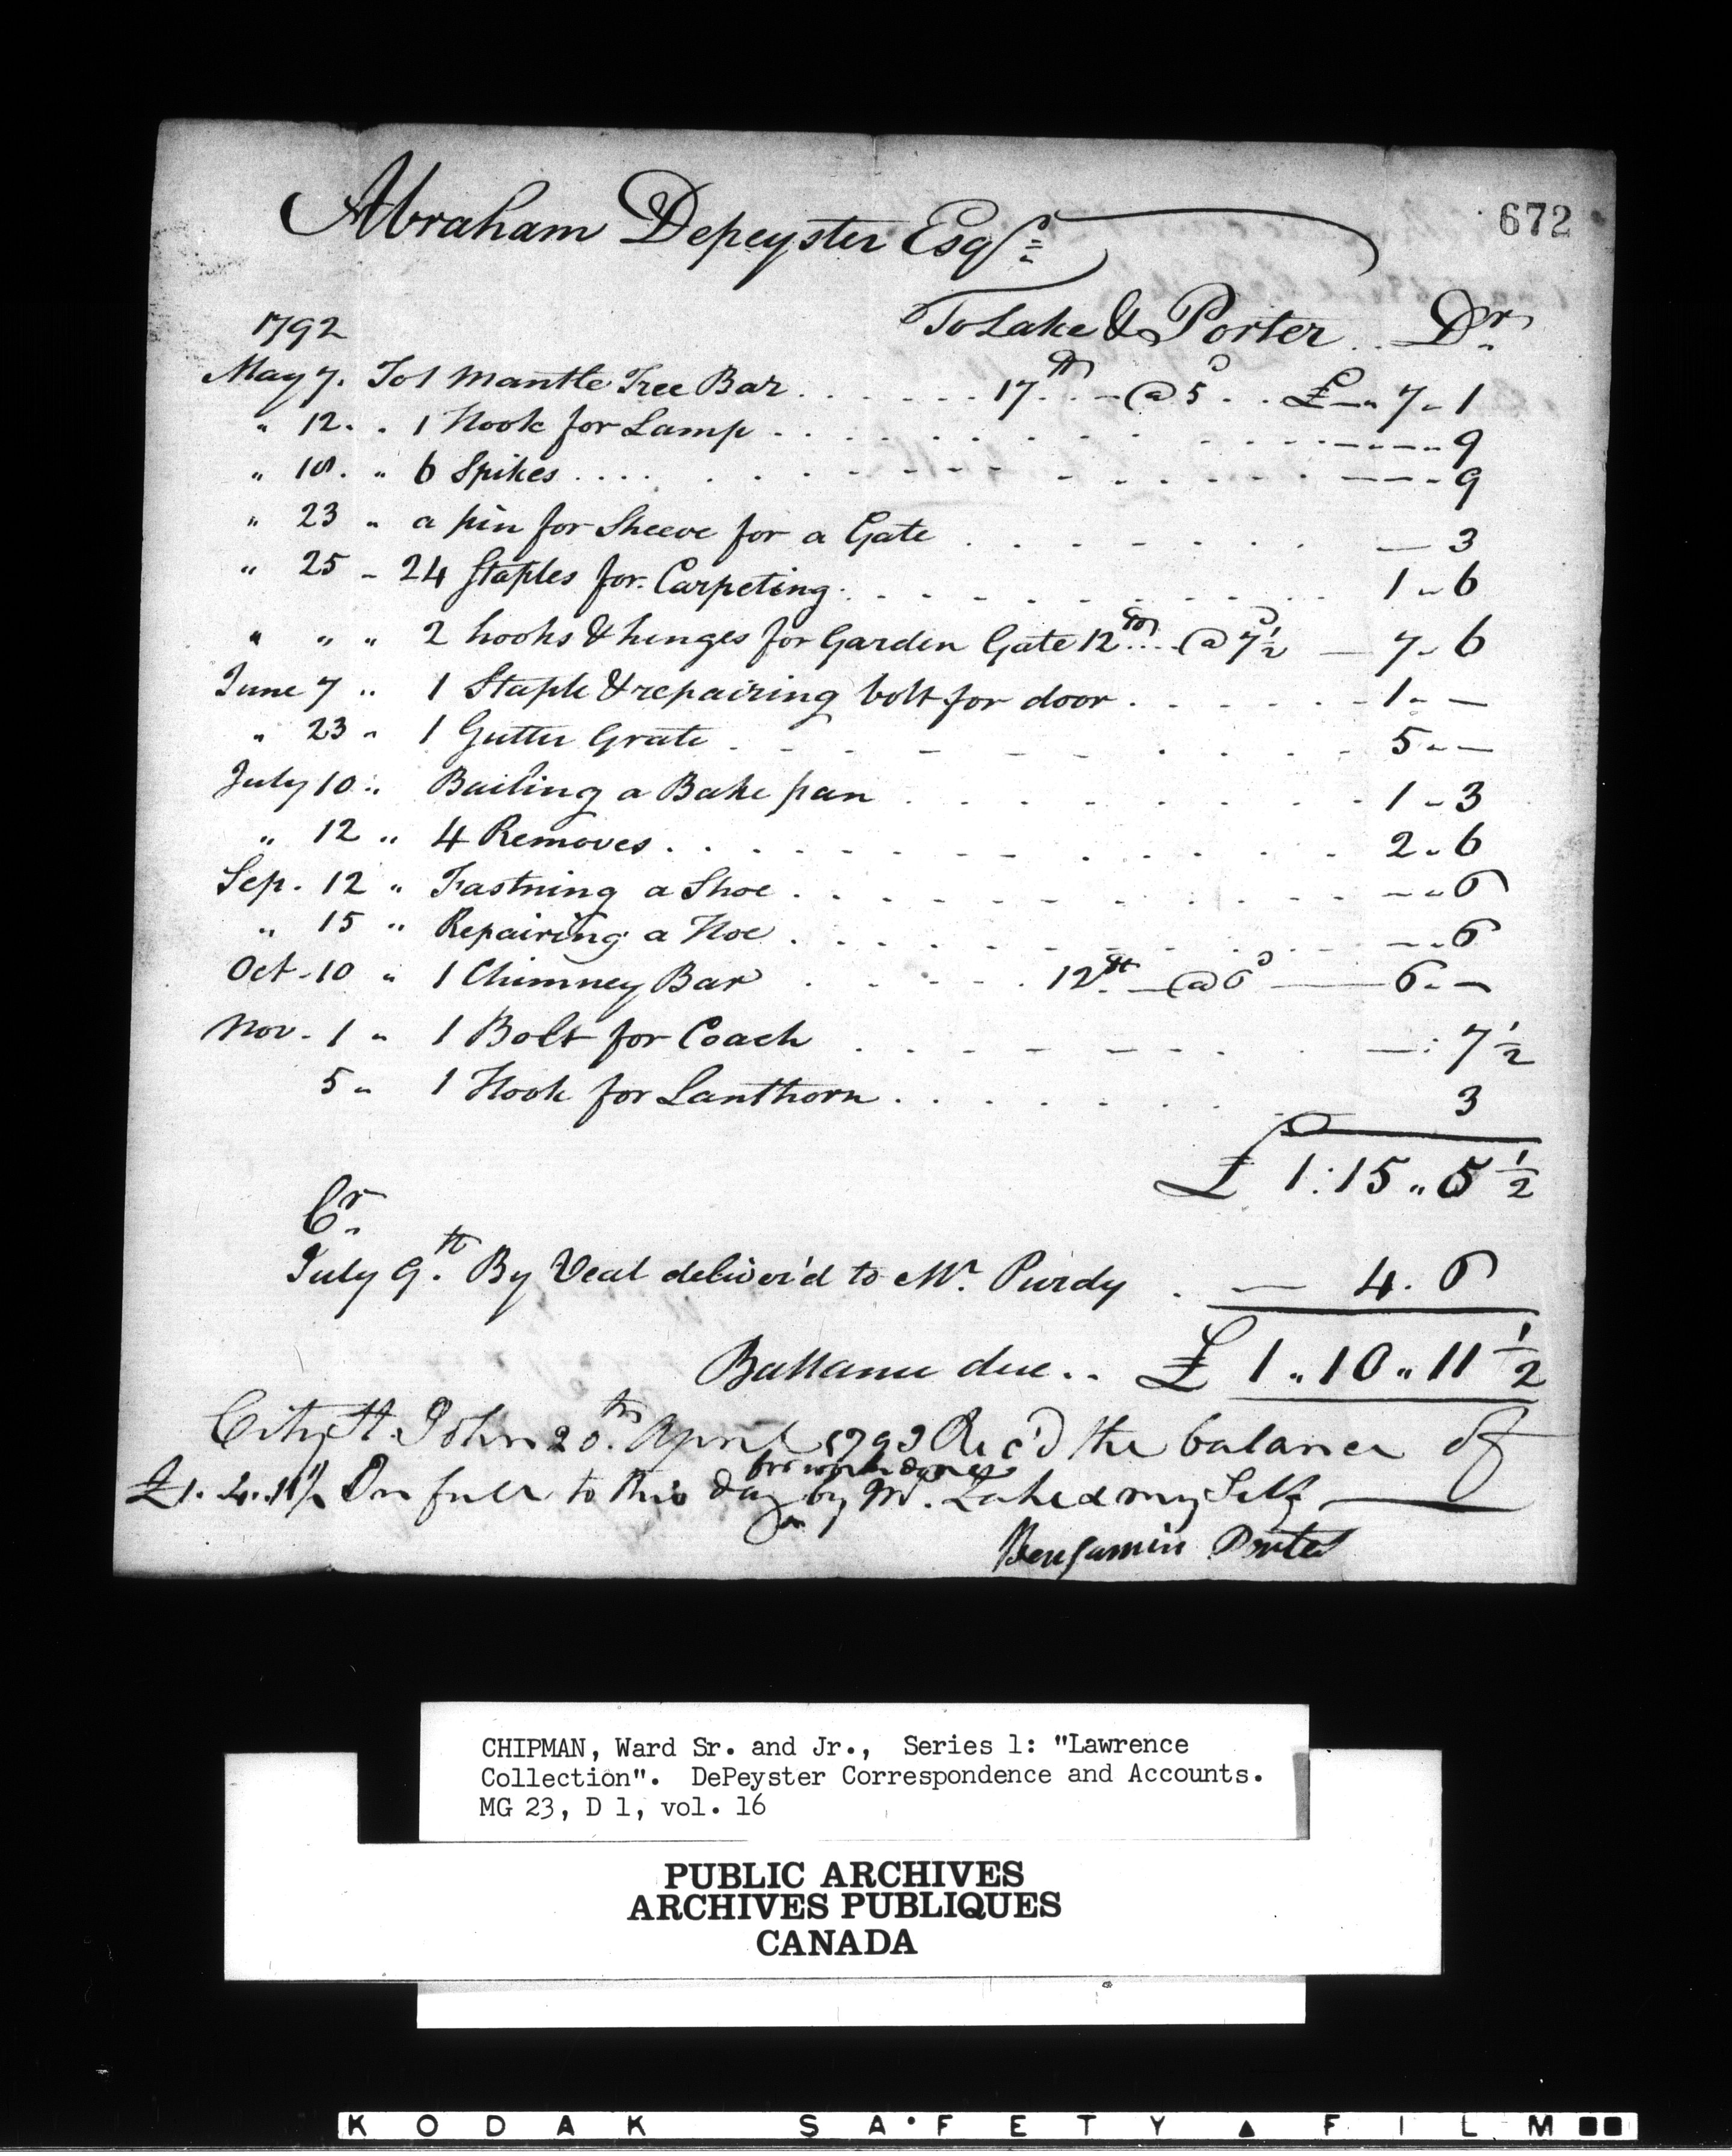 672
Abraham Depeyster Esqr
To Lake & Porter .. Dr
1792
May 7. To 1 Mantle Tree Bar ....... 17 lb @ 5d .. £ — " 7 " 1
" 12. " 1 Hook for Lamp ....... 9
" 18. " 6 Spikes ....... 9
" 23 " a pin for Sheeve for a Gate ....... — 3
" 25 - 24 Staples for Carpeting ....... 1 " 6
" " " 2 hooks & hinges for Garden Gate 12 lb @ 7½d — 7 " 6
June 7 " 1 Staple & repairing bolt for door ....... 1 " —
" 23 " 1 Gutter Grate ....... 5 " —
July 10 " Bailing a Bake pan ....... 1 " 3
" 12 " 4 Removes ....... 2 " 6
Sep. 12 " Fastning a Shoe ....... — " 6
" 15 " Repairing a Hoe ....... — " 6
Oct. 10 " 1 Chimney Bar ..... 12 lb — @ 6d — 6 " —
Nov. 1 " 1 Bolt for Coach ....... — : 7½
5 " 1 Hook for Lanthorn ....... 3
£ 1 : 15 " 5½
Cr
July 9th. By Veal deliver'd to Mr. Purdy . — 4 . 6
Ballance due .. £ 1 " 10 " 11½
City St. John 20th. April 1793 Rec'd the balance of
for work done
£1. 4. 11½ In full to this day by Mr. Lake & my Self —
Benjamin Porter
CHIPMAN, Ward Sr. and Jr., Series 1: "Lawrence
Collection". DePeyster Correspondence and Accounts.
MG 23, D 1, vol. 16
PUBLIC ARCHIVES
ARCHIVES PUBLIQUES
CANADA
KODAK SA•FETY ▲ FILM ■■